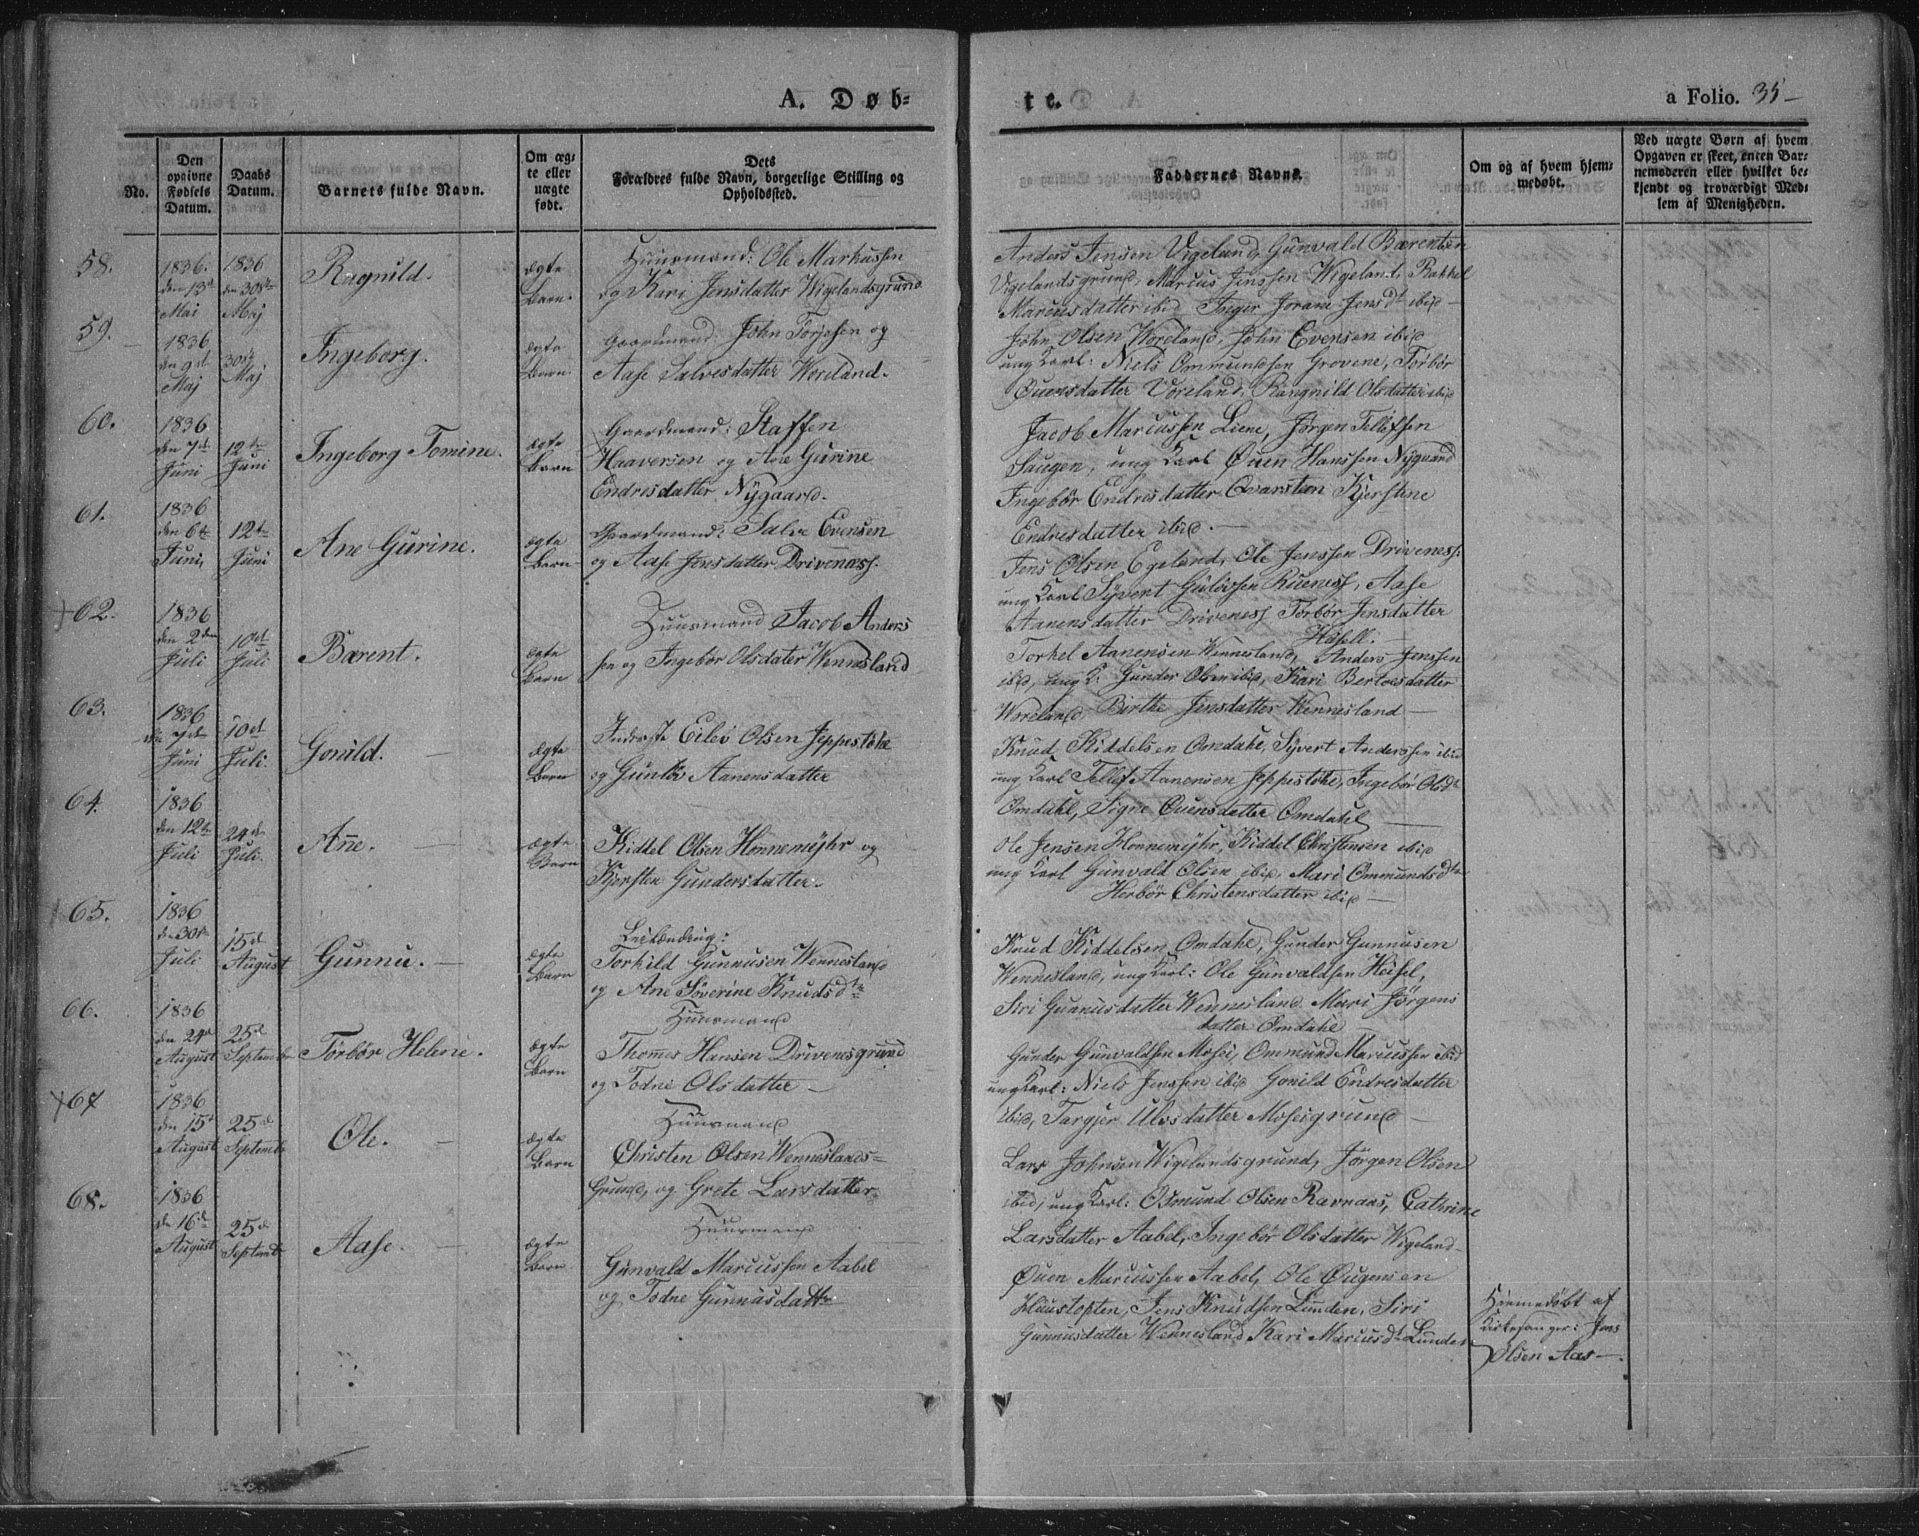 A. Døb-
No.
Den opgivne Fødsels Datum.
Daabs Datum.
Barnets fulde Navn.
Om ægte eller uægte født.
Dets Forældres fulde Navn, borgerlige Stilling og Opholdssted.
58.
1836. den 13de Mai
1836 den 30te Maj
Ragnild.
ægte Barn.
Huusmand: Ole Markussen
og Kari Jensdatter Wigelandsgrund
59.
1836 den 9de Maj
30te Maj
Ingeborg.
ægte Barn.
Gaardmand: John Torjesen og
Aase Salvesdatter Woreland.
60.
1836 den 7de Juni
12te Juni
Ingeborg Tomine.
ægte Barn
Gaardmand: Staffen
Haaversen og Ane Gurine
Endresdatter Nygaard.
61.
1836 den 6te Juni,
12te Juni
Ane Gurine.
ægte Barn
Gaardmand: Salve Evensen
og Aase Jensdatter Drivenæss.
62.
1836 den 2den Juli
10de Juli
Bærent.
ægte Barn
Huusmand Jacob Anders
sen og Ingebør Olsdater Wennesland
63.
1836 den 7de Juni
10de Juli.
Gonild.
ægte Barn
Inderste Eilev Olsen Jeppestole
og Guntør Aanensdatter
64.
1836 den 12te Juli
24de Juli.
Ane.
ægte Barn
Kiddel Olsen Honnemyhr og
Kjersten Gundersdatter.
65.
1836 den 30te Juli
15de August
Gunnu.
ægte Barn
Leilænding:
Torkild Gunnusen Wennesland
og Ane Søverine Knudsdtr
66.
1836 den 24de August
25de September
Torbør Helene.
ægte Barn
Huusmand
Thomes Hansen Drivenesgrund
og Todne Olsdatter
67
1836 den 15de August
25de September
Ole.
ægte Barn
Huusmand
Christen Olsen Wenneslands-
Grund, og Grete Larsdatter
68.
1836 den 16de August
25de Septembr
Aase.
ægte Barn
Huusmand
Gunvald Marcussen Aabel
og Todne Gunnusdattr
te.
a Folio. 35
Faddernes Navne.
Om og af hvem hjemmedøbt.
Ved uægte Børn af hvem Opgaven er skeet, enten Barnemoderen eller hvilket bekjendt og troværdigt Medlem af Menigheden.
Anders Jensen Vigeland, Gunvald Bærentsen
Vigelandsgrund, Marcus Jenssen Wigeland, Rakkel
Marcusdatter ibid Inger Jorane Jensdt ibid
John Olsen Woreland, John Evensen ibid
ung Karl: Niels Ommundsen Grovene, Torbør
Øuensdatter Voreland, Rangnild Olsdatter ibid
Jacob Marcussen Liene, Jørgen Tellefsen
Saugen, ung Karl Øuen Hanssen Nygaard
Ingebør Endresdatter Qvarsten Kjerstine
Endresdatter ibid.
Jens Olsen Egeland, Ole Jenssen Driveness.
ung Karl Syvert Guloussen Rueness, Aase
Aanensdatter Driveness Torbør Jensdatter
Høsell.
Torkel Aanensen Wennesland, Anders Jenssen
ibid, ung K: Gunder Olsen ibid, Kari Bertosdatter
Woreland Birthe Jensdatter Wennesland
Knud Kiddelsen Omdahl, Syvert Anderssen ibid
ung Karl Tellef Aanensen Jeppestole, Ingebør Olsdt
Omdahl, Sigre Øuensdatter Omdahl
Ole Jensen Honnemyhr, Kiddel Christensen ibid
ung Karl Gunvald Olsen ibid, Mari Ommundsdtr
Herbør Christensdatter ibid
Knud Kiddelsen Omdahl, Gunder Gunnusen
Wennesland, ung Karl: Ole Gunvaldsen Heisel,
Siri Gunnusdatter Wennesland Mari Jørgens
datter Omdahl
Gunder Gunvaldsen Mosei, Ommund Marcussen ibid
ung Karl: Niels Jenssen ibid Gonild Endresdatter
ibid, Targjer Ulvsdatter Moseigrund
Lars Johnsen Wigelandsgrund, Jørgen Olsen
ibid, ung Karl: Osmund Olsen Ravnaas, Cathrine
Larsdatter Aabel, Ingebør Olsdatter Wigeland
Øuen Marcussen Aabel, Ole Øugensen
Huustopten, Jens Knudsen Lunden, Siri
Gunnusdatter Wennesland Kari Marcusdt Lunden
Hiemedøbt af
Kirkesanger: Jens
Olsen Aas